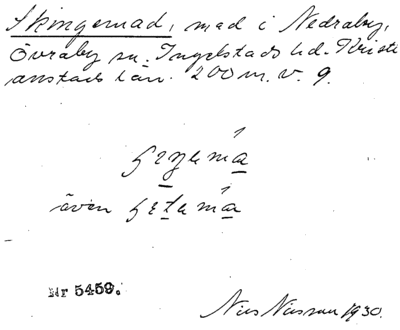 Skingemad, mad i Nedraby,
Övraby sn. Ingelstads hd. Kristi
anstads län. 200 m. v. 9.
även
Nr 5459.
Nils Nilsson 1930.